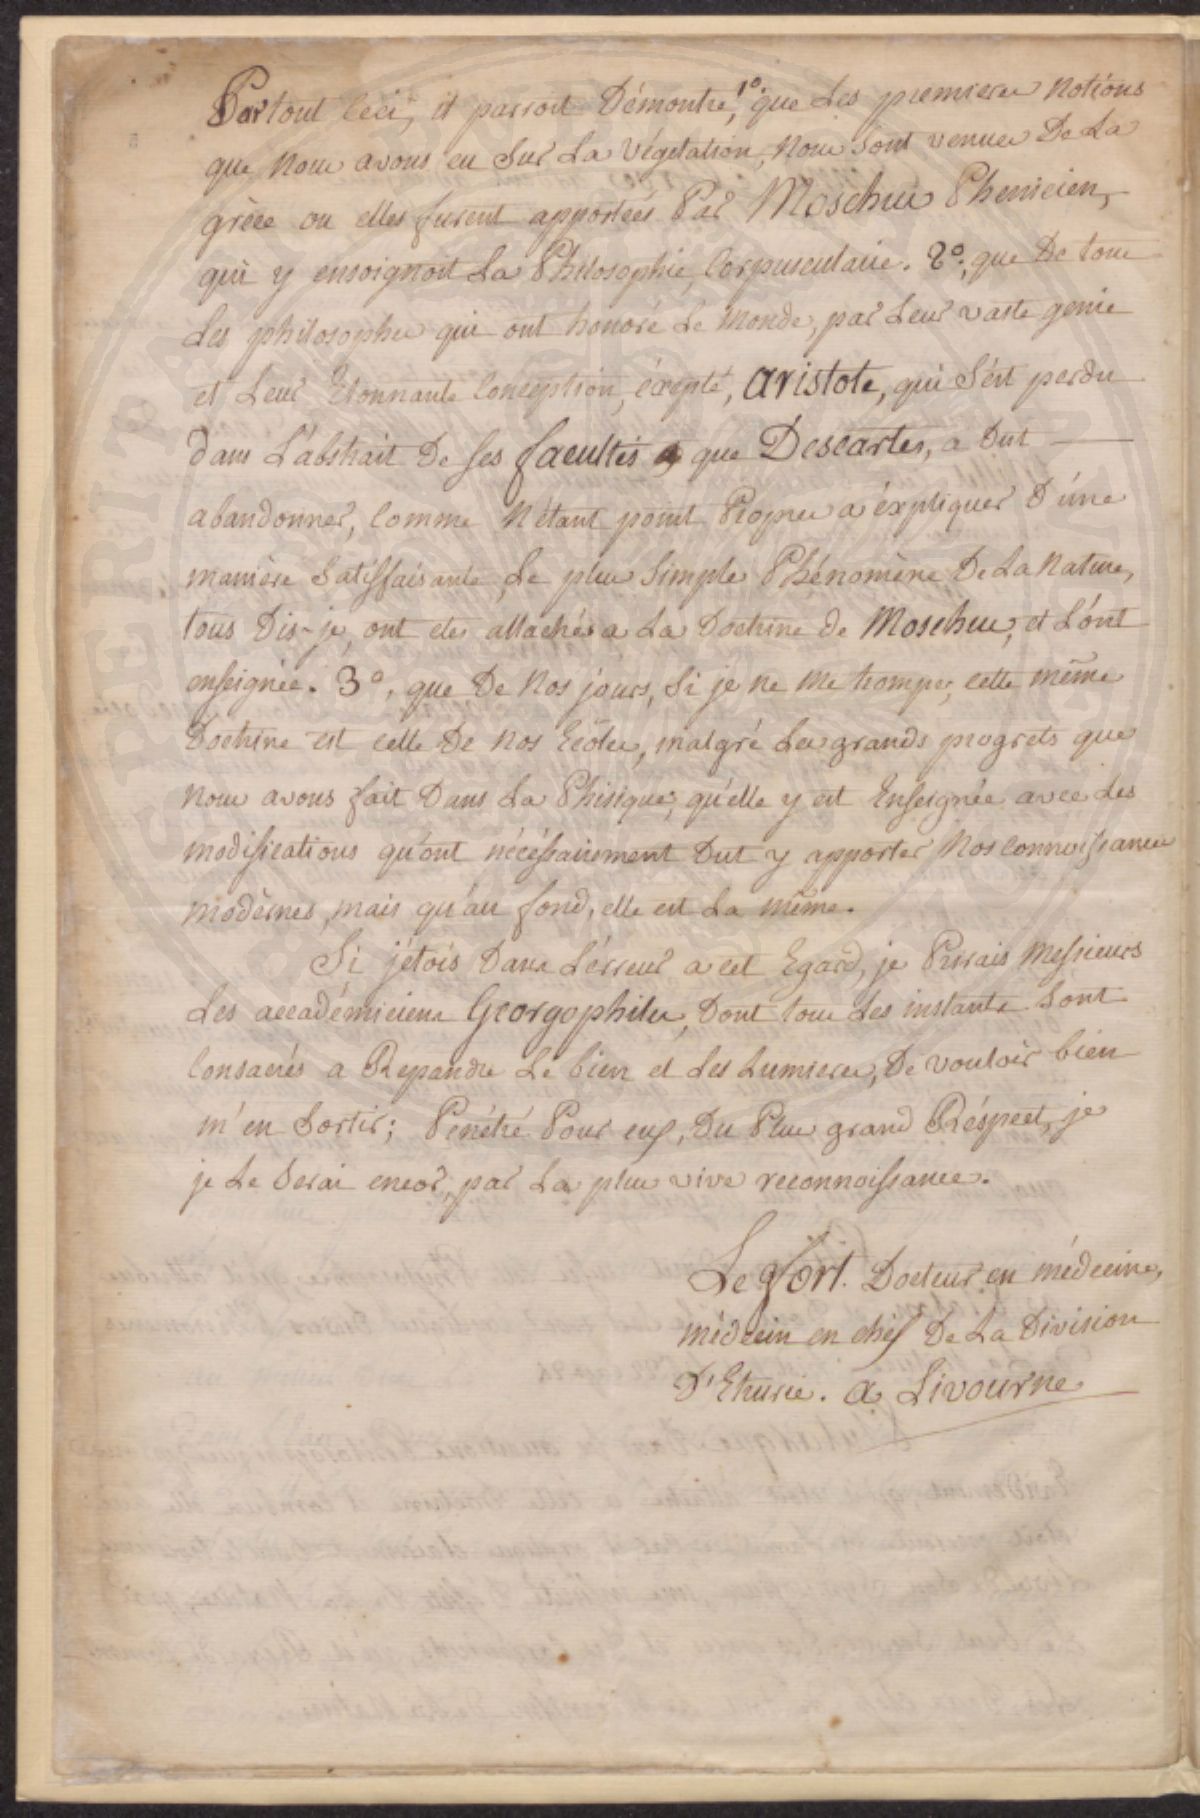 Par tout ceci, il parroit Démontré, 1º. que Les premieres Notions
que Nous avons eu Sur La Végétation, Nous Sont venues De La
grèce ou elles furent apportées Par Moschus Phenicien,
qui y enseignoit La Philosophie Corpusculaire. 2º, que De tous
Les philosophes qui ont honoré Le Monde, par Leur vaste genie
et Leur Etonnante Conception, éxepté, aristote, qui S'ést perdu
Dans L'abstrait De ses facultés, que Descartes, a Dut
abandonner, Comme N'étant point Propres a éxpliquer D'úne
manière Satisfaisante, Le plus Simple Phénomène De La Nature,
tous Dis-je, ont étés attachés a La Doctrine de Moschus, et L'ónt
enseignée. 3º, que De Nos jours, Si je ne Me trompe, cette même
Doctrine est celle De Nos Ecôles, malgré Les grands progrets que
Nous avons fait Dans La Phisique; qu'elle y est Enseignée avec Les
modifications qu'ont nécéssairement Dut y apporter Nos Connoissances
modèrnes, mais qu'au fond, elle est La même.
Si j'étois Dans L'érreur a cet Egard, je Prirais Messieurs
Les accadémiciens Georgophiles, Dont tous Les instants Sont
Consacrés a Repandre Le bien et Les Lumieres, De vouloir bien
m'en Sortir; Pénétré Pour eux, Du Plus grand Réspect, je
je Le Serai encor, par La plus vive reconnoissance.
Le fort. Docteur en médecine,
médecin en chéf De La Division
D'Etrurie. a Livourne